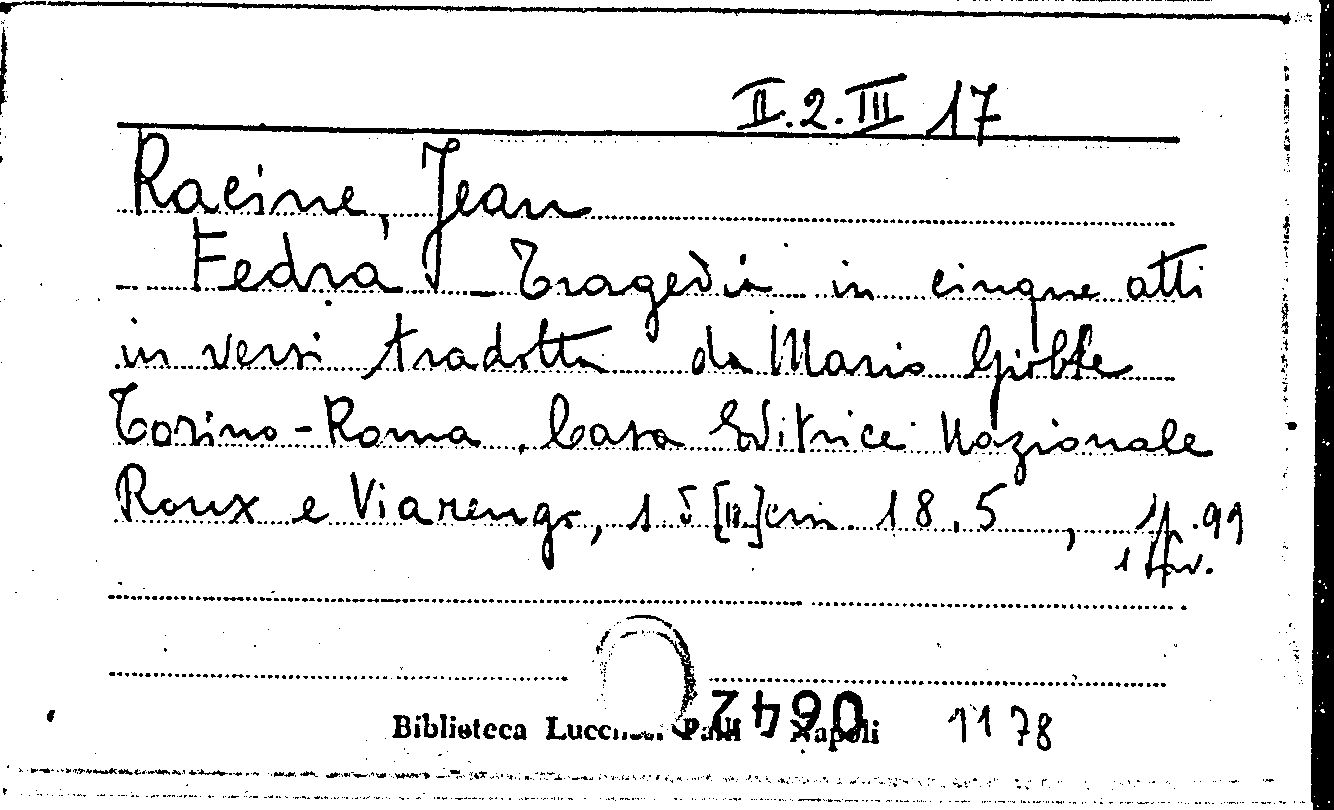 II.2.III 17
Racine, Jean
Fedra - Tragedia in cinque atti
in versi tradotta da Mario Giobbe
Torino-Roma, Casa Editrice Nazionale
Roux e Viarengo, cm. 18,5, pp. 99
Biblioteca Lucchesi Palli Napoli 1178
0642